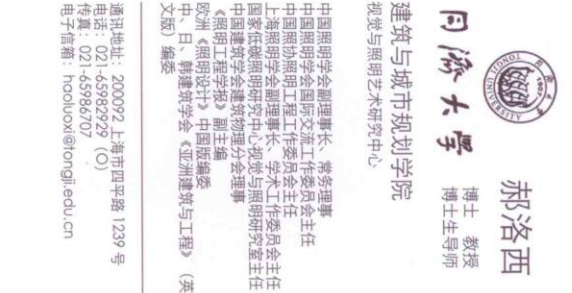 同济大学
郝洛西
博士 教授
博士生导师
建筑与城市规划学院
视觉与照明艺术研究中心
中国照明学会副理事长、常务理事
中国照明学会国际交流工作委员会主任
中国照协照明工程工作委员会主任
上海照明学会副理事长、学术工作委员会主任
国家低碳照明研究中心视觉与照明研究室主任
中国建筑学会建筑物理分会理事
《照明工程学报》副主编
欧洲《照明设计》中国版编委
中、日、韩建筑学会《亚洲建筑与工程》（英
文版）编委
通讯地址：200092 上海市四平路 1239 号
电话：021-65982929（O）
传真：021-65986707
电子信箱：haoluoxi@tongji.edu.cn